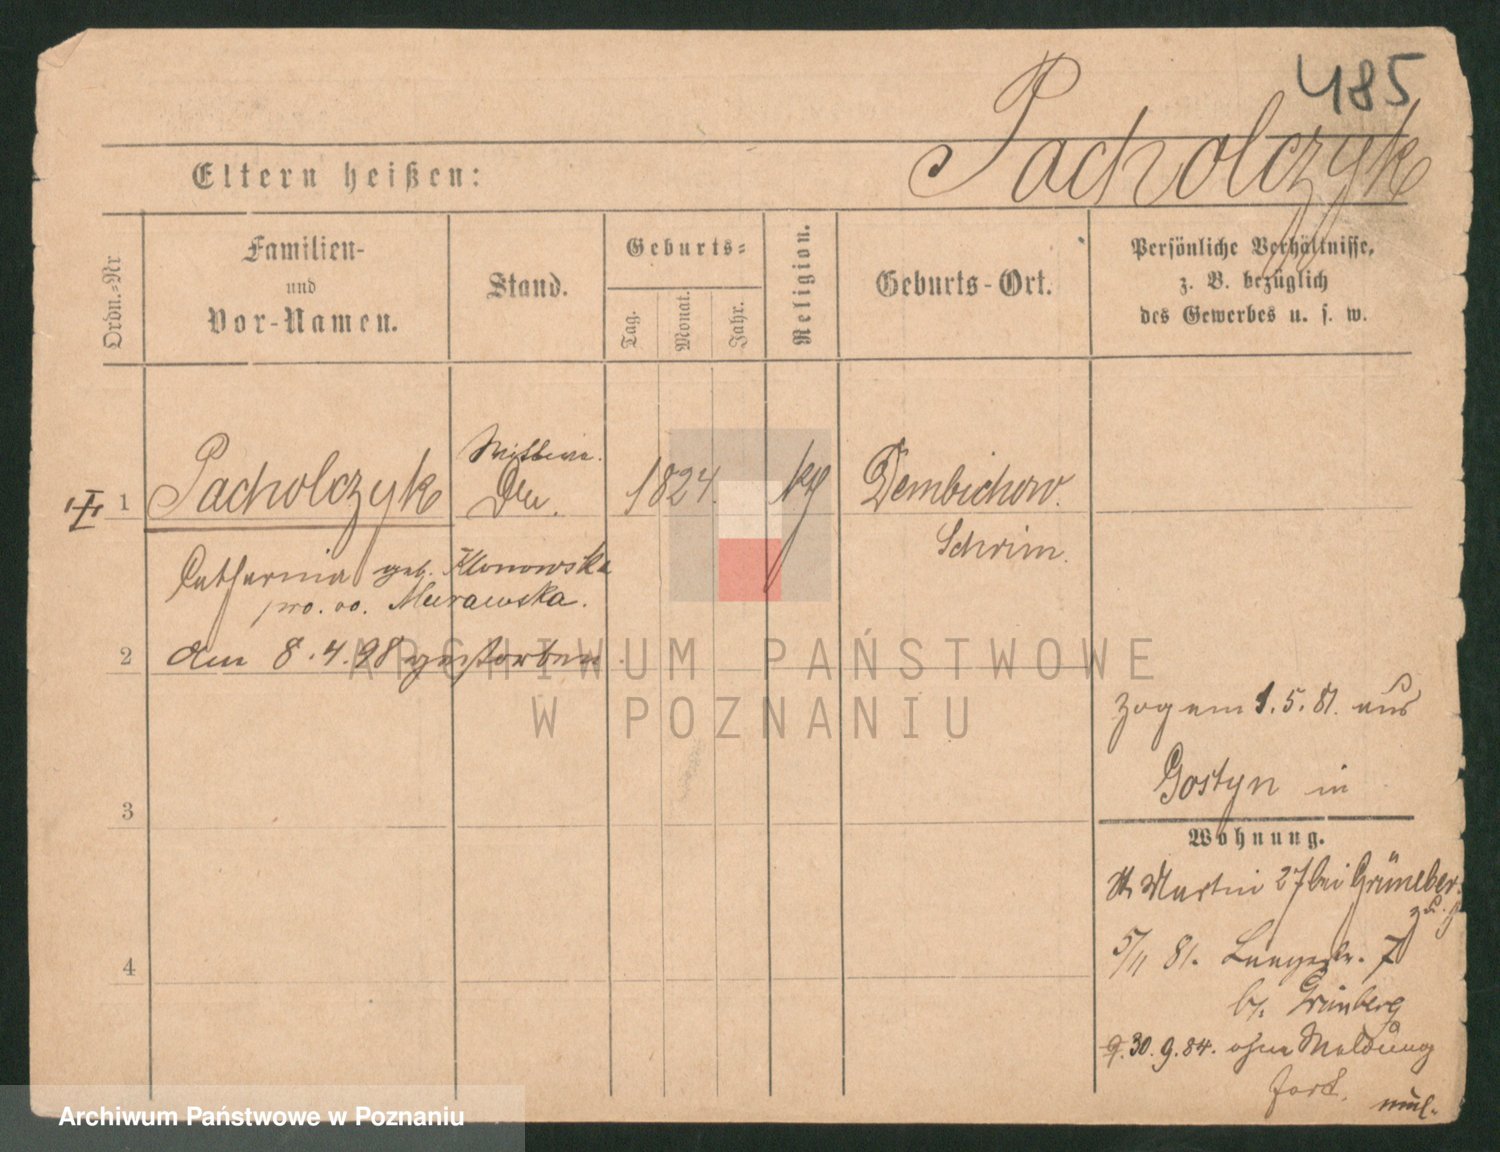 485
Pacholczyk
Eltern heißen:
Ordn.-Nr
Familien-
und
Vor-Namen.
Stand.
Geburts-
Tag.
Monat.
Jahr.
Religion.
Geburts-Ort.
Persönliche Verhältnisse,
z. B. bezüglich
des Gewerbes u. s. w.
Wittwe.
1 Pacholczyk 1824. Dembichow.
Schrim.
Catharina geb. Klonowska
pro. vo. Murawska.
2 am 8.4.98 gestorben.
ARCHIWUM PAŃSTWOWE
W POZNANIU
zog am 1.5.81. aus
Gostyn in
3
Wohnung.
St. Martin 27 bei Grüneberg
5/11 81. Langestr. 7
4
b/. Grünberg
30.9.84. ohne Meldung
fort.
Archiwum Państwowe w Poznaniu